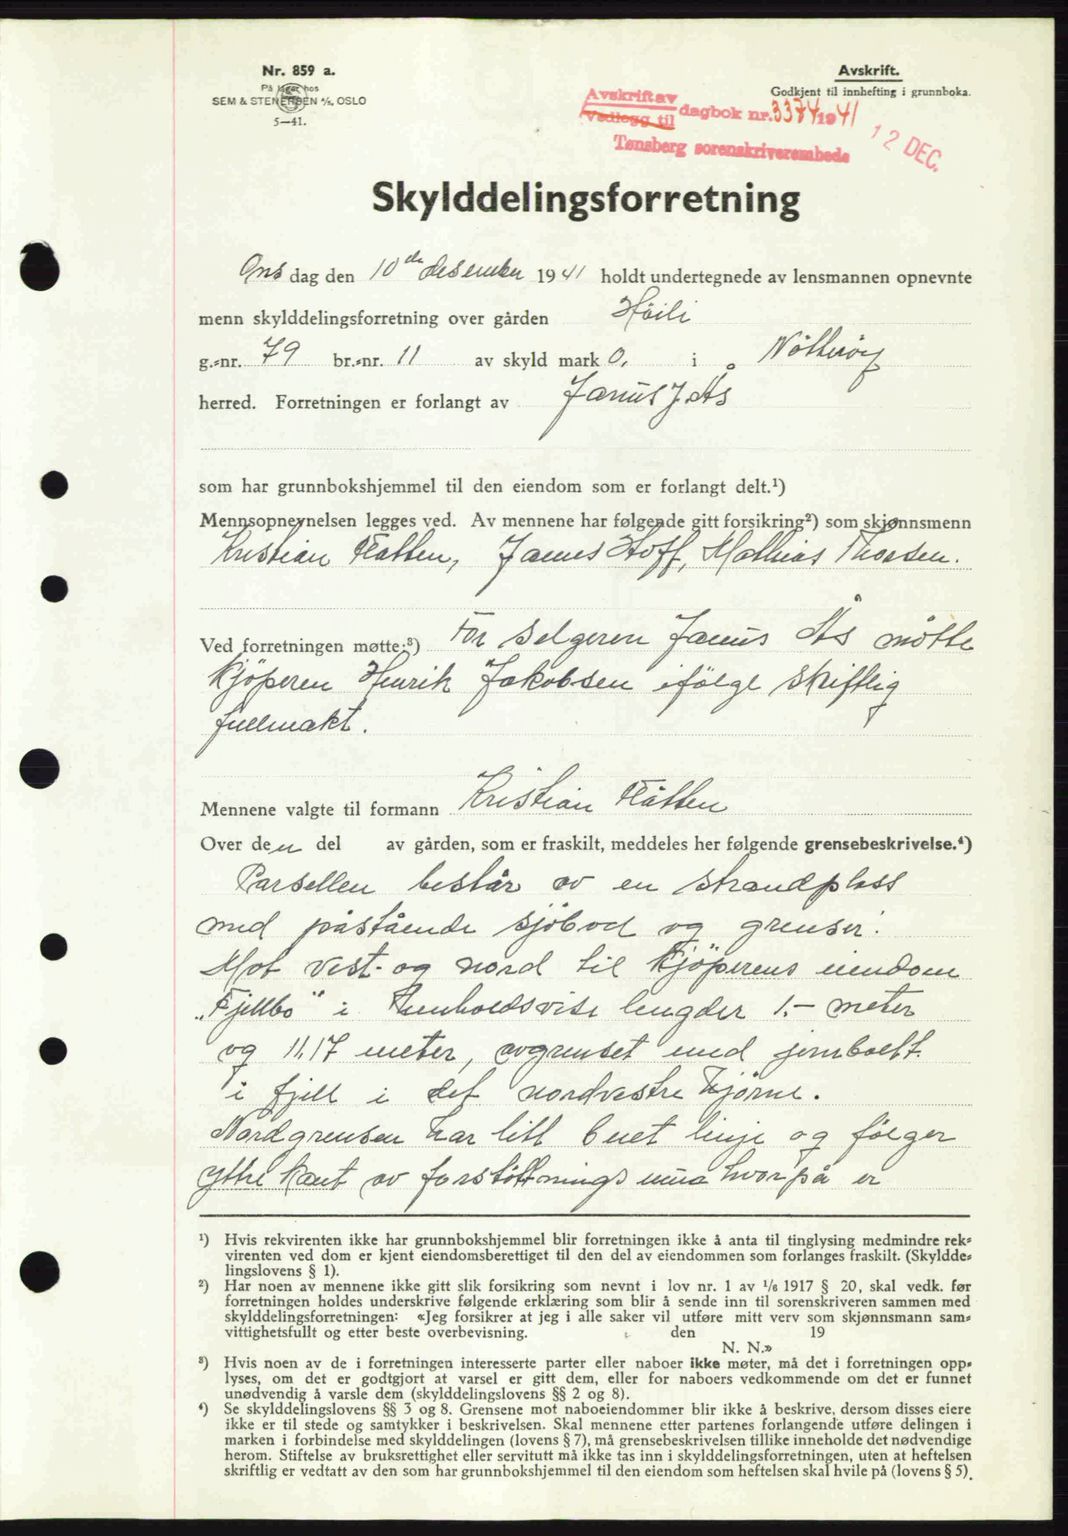 Nr. 859 a.
På lager hos
SEM & STENERSEN A/S, OSLO
5—41.
Avskrift.
Godkjent til innhefting i grunnboka.
Avskrift av
Vedlegg til
dagbok nr. 3374 1941
Tønsberg sorenskriverembede
12 DEC.
Skylddelingsforretning
Ons dag den 10de desember 1941 holdt undertegnede av lensmannen opnevnte
menn skylddelingsforretning over gården Höili
g.-nr. 79 br.-nr. 11 av skyld mark 0, i Nötteröy
herred. Forretningen er forlangt av Janus J. Ås
som har grunnbokshjemmel til den eiendom som er forlangt delt.¹)
Mennsopnevnelsen legges ved. Av mennene har følgende gitt forsikring²) som skjønnsmenn
Kristian Flåtten, James Hoff, Mathias Thorsen.
Ved forretningen møtte:³) For selgeren Janus Ås møtte
kjöperen Henrik Jakobsen ifölge skriftlig
fullmakt.
Mennene valgte til formann Kristian Flåtten
Over den del av gården, som er fraskilt, meddeles her følgende grensebeskrivelse.⁴)
Parsellen består av en strandplass
med påstående sjöbod og grenser:
Mot vest- og nord til kjöperens eiendom
„Fjellbo" i henholdsvise lengder 1.- meter
og 11.17 meter, avgrenset med jernbolt
i fjell i det nordvestre hjörne.
Nordgrensen har litt buet linje og fölger
ytre kant av forstötningsmur hvorpå er
¹) Hvis rekvirenten ikke har grunnbokshjemmel blir forretningen ikke å anta til tinglysing medmindre rek-
virenten ved dom er kjent eiendomsberettiget til den del av eiendommen som forlanges fraskilt. (Skyldde-
lingslovens § 1).
²) Har noen av mennene ikke gitt slik forsikring som nevnt i lov nr. 1 av 1/6 1917 § 20, skal vedk. før
forretningen holdes underskrive følgende erklæring som blir å sende inn til sorenskriveren sammen med
skylddelingsforretningen: «Jeg forsikrer at jeg i alle saker vil utføre mitt verv som skjønnsmann sam-
vittighetsfullt og etter beste overbevisning. den 19
N. N.»
³) Hvis noen av de i forretningen interesserte parter eller naboer ikke møter, må det i forretningen opp-
lyses, om det er godtgjort at varsel er gitt dem, eller for naboers vedkommende om det er funnet
unødvendig å varsle dem (skylddelingslovens §§ 2 og 8).
⁴) Se skylddelingslovens §§ 3 og 8. Grensene mot naboeiendommer blir ikke å beskrive, dersom disses eiere
ikke er til stede og samtykker i beskrivelsen. Skal mennene etter partenes forlangende utføre delingen i
marken i forbindelse med skylddelingen (lovens § 7), må grensebeskrivelsen tillike inneholde det nødvendige
herom. Stiftelse av bruksrettighet eller servitutt må ikke tas inn i skylddelingsforretningen, uten at heftelsen
skriftlig er vedtatt av den som har grunnbokshjemmel til den eiendom som heftelsen skal hvile på (lovens § 5).